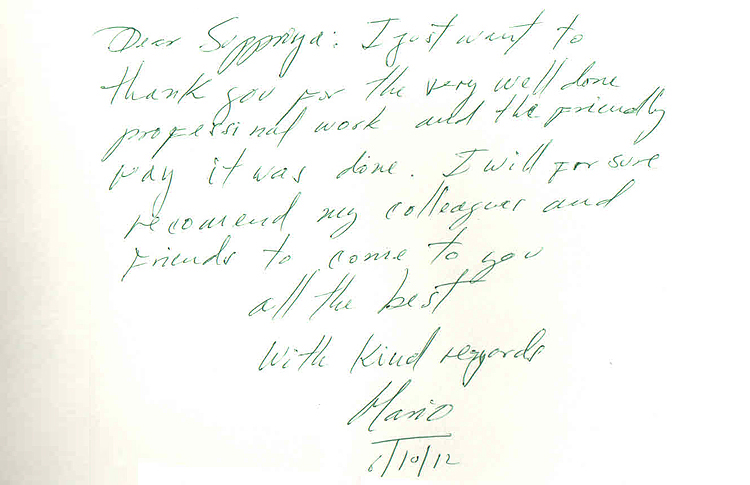 Dear Suppriya: I just want to
thank you for the very well done
professinal work and the friendly
way it was done. I will for sure
recomend my colleagues and
Friends to come to you
all the best
With Kind regards
Mario
6/10/12